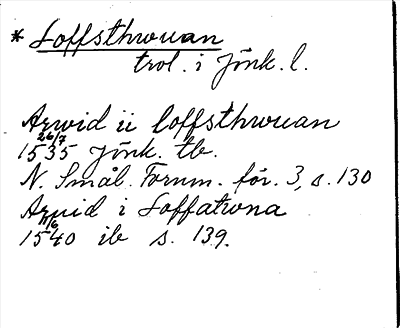 * Loffsthwuan
trol. i Jönk. l.
Arwid ii loffsthwuan
26/7
1535 Jönk. tb.
N. Smål. Fornm. för. 3, s. 130
Aruid i Loffatwna
1540 ib s. 139.